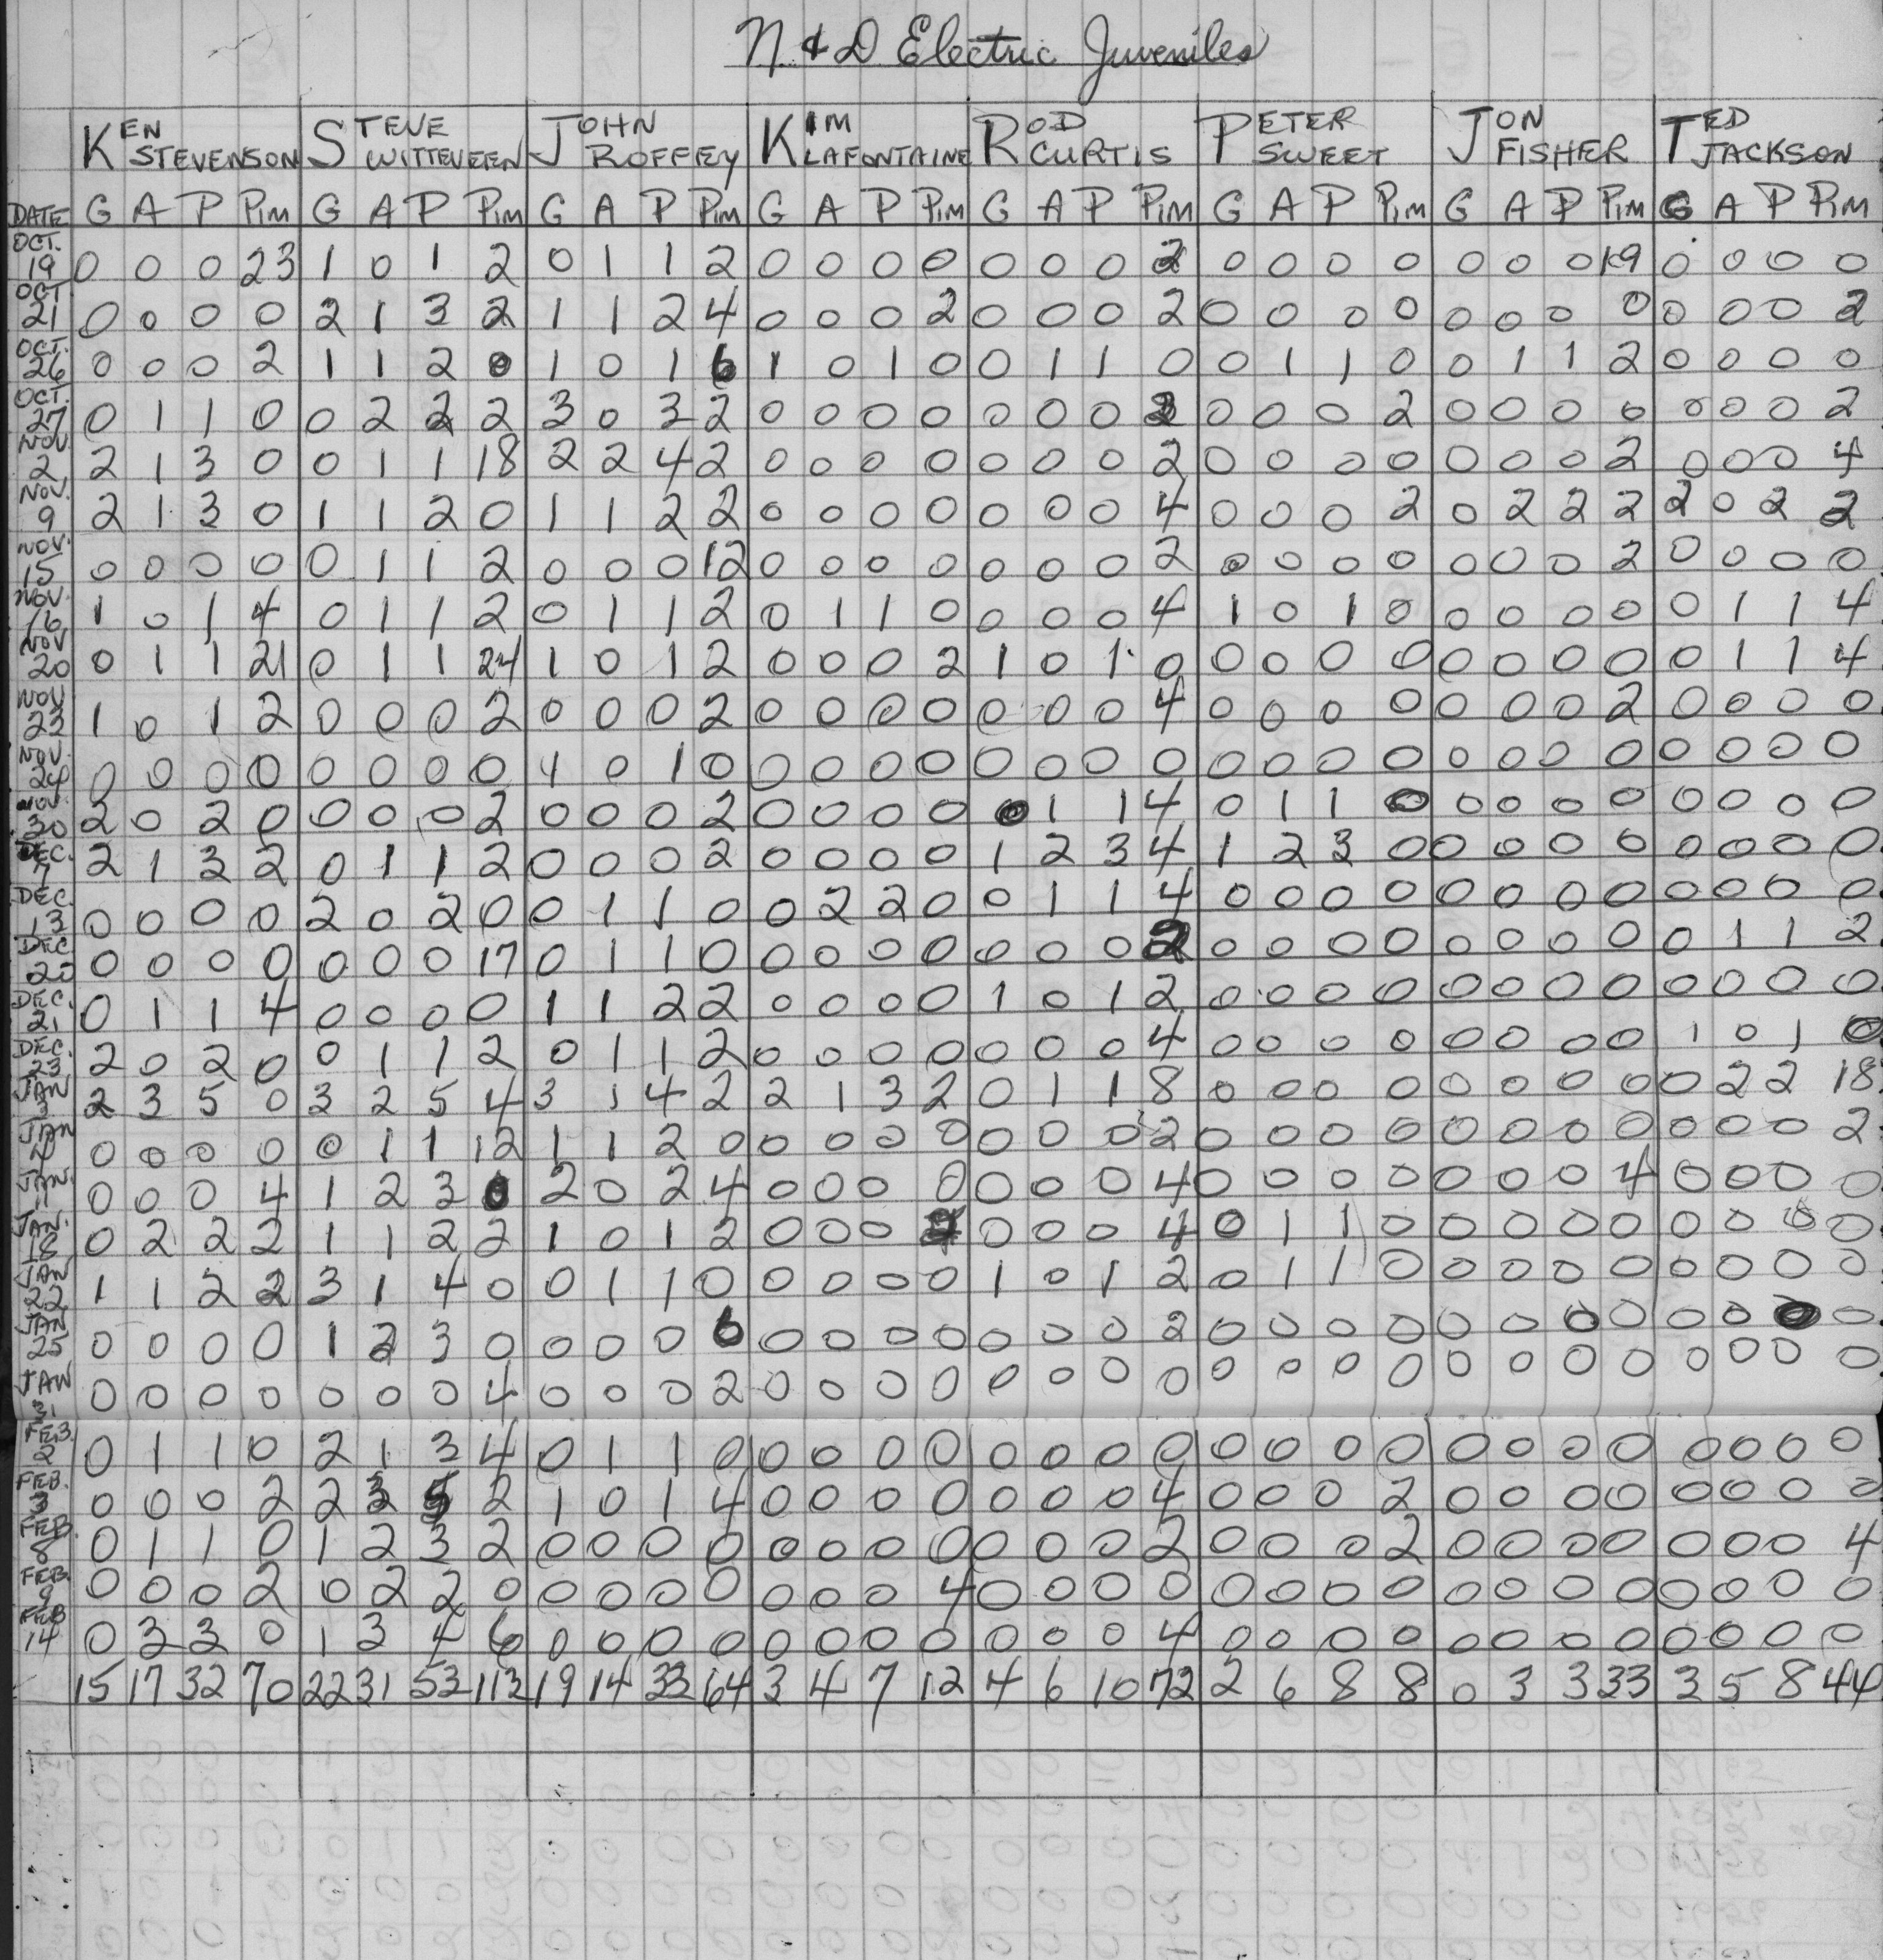 N & D Electric Juveniles
KEN STEVENSON STEVE WITTEVEEN JOHN ROFFEY KIM LAFONTAINE ROD CURTIS PETER SWEET JON FISHER TED JACKSON
DATE G A P PIM G A P PIM G A P PIM G A P PIM G A P PIM G A P PIM G A P PIM G A P PIM
OCT. 19 0 0 0 23 1 0 1 2 0 1 1 2 0 0 0 0 0 0 0 2 0 0 0 0 0 0 0 19 0 0 0 0
OCT 21 0 0 0 0 2 1 3 2 1 1 2 4 0 0 0 2 0 0 0 2 0 0 0 0 0 0 0 0 0 0 0 2
OCT. 26 0 0 0 2 1 1 2 0 1 0 1 6 1 0 1 0 0 1 1 0 0 1 1 0 0 1 1 2 0 0 0 0
OCT. 27 0 1 1 0 0 2 2 2 3 0 3 2 0 0 0 0 0 0 0 2 0 0 0 2 0 0 0 0 0 0 0 2
NOV. 2 2 1 3 0 0 1 1 18 2 2 4 2 0 0 0 0 0 0 0 2 0 0 0 0 0 0 0 2 0 0 0 4
NOV. 9 2 1 3 0 1 1 2 0 1 1 2 2 0 0 0 0 0 0 0 4 0 0 0 2 0 2 2 2 2 0 2 2
NOV. 15 0 0 0 0 0 1 1 2 0 0 0 12 0 0 0 0 0 0 0 2 0 0 0 0 0 0 0 2 0 0 0 0
NOV. 16 1 0 1 4 0 1 1 2 0 1 1 2 0 1 1 0 0 0 0 4 1 0 1 0 0 0 0 0 0 1 1 4
NOV 20 0 1 1 21 0 1 1 24 1 0 1 2 0 0 0 2 1 0 1 0 0 0 0 0 0 0 0 0 0 1 1 4
NOV 23 1 0 1 2 0 0 0 2 0 0 0 2 0 0 0 0 0 0 0 4 0 0 0 0 0 0 0 2 0 0 0 0
NOV. 24 0 0 0 0 0 0 0 0 1 0 1 0 0 0 0 0 0 0 0 0 0 0 0 0 0 0 0 0 0 0 0 0
NOV. 30 2 0 2 0 0 0 0 2 0 0 0 2 0 0 0 0 0 1 1 4 0 1 1 0 0 0 0 0 0 0 0 0
DEC. 7 2 1 3 2 0 1 1 2 0 0 0 2 0 0 0 0 1 2 3 4 1 2 3 0 0 0 0 0 0 0 0 0
DEC. 13 0 0 0 0 2 0 2 0 0 1 1 0 0 2 2 0 0 1 1 4 0 0 0 0 0 0 0 0 0 0 0 0
DEC 20 0 0 0 0 0 0 0 17 0 1 1 0 0 0 0 0 0 0 0 2 0 0 0 0 0 0 0 0 0 1 1 2
DEC. 21 0 1 1 4 0 0 0 0 1 1 2 2 0 0 0 0 1 0 1 2 0 0 0 0 0 0 0 0 0 0 0 0
DEC. 23 2 0 2 0 0 1 1 2 0 1 1 2 0 0 0 0 0 0 0 4 0 0 0 0 0 0 0 0 1 0 1 0
JAN 3 2 3 5 0 3 2 5 4 3 1 4 2 2 1 3 2 0 1 1 8 0 0 0 0 0 0 0 0 0 2 2 18
JAN 0 0 0 0 0 1 1 12 1 1 2 0 0 0 0 0 0 0 0 2 0 0 0 0 0 0 0 0 0 0 0 2
JAN. 11 0 0 0 4 1 2 3 0 2 0 2 4 0 0 0 0 0 0 0 4 0 0 0 0 0 0 0 4 0 0 0 0
JAN. 18 0 2 2 2 1 1 2 2 1 0 1 2 0 0 0 0 0 0 4 0 1 1 0 0 0 0 0 0 0 0 0
JAN 22 1 1 2 2 3 1 4 0 0 1 1 0 0 0 0 0 1 0 1 2 0 1 1 0 0 0 0 0 0 0 0 0
JAN 25 0 0 0 0 1 2 3 0 0 0 0 6 0 0 0 0 0 0 0 2 0 0 0 0 0 0 0 0 0 0 0 0
JAN 31 0 0 0 0 0 0 0 4 0 0 0 2 0 0 0 0 0 0 0 0 0 0 0 0 0 0 0 0 0 0 0 0
FEB. 2 0 1 1 0 2 1 3 4 0 1 1 0 0 0 0 0 0 0 0 0 0 0 0 0 0 0 0 0 0 0 0 0
FEB. 3 0 0 0 2 2 3 5 2 1 0 1 4 0 0 0 0 0 0 0 4 0 0 0 2 0 0 0 0 0 0 0 0
FEB. 8 0 1 1 0 1 2 3 2 0 0 0 0 0 0 0 0 0 0 0 2 0 0 0 2 0 0 0 0 0 0 0 4
FEB. 9 0 0 0 2 0 2 2 0 0 0 0 0 0 0 0 4 0 0 0 0 0 0 0 0 0 0 0 0 0 0 0 0
FEB 14 0 3 3 0 1 3 4 6 0 0 0 0 0 0 0 0 0 0 0 4 0 0 0 0 0 0 0 0 0 0 0 0
15 17 32 70 22 31 53 113 19 14 33 64 3 4 7 12 4 6 10 72 2 6 8 8 0 3 3 33 3 5 8 44